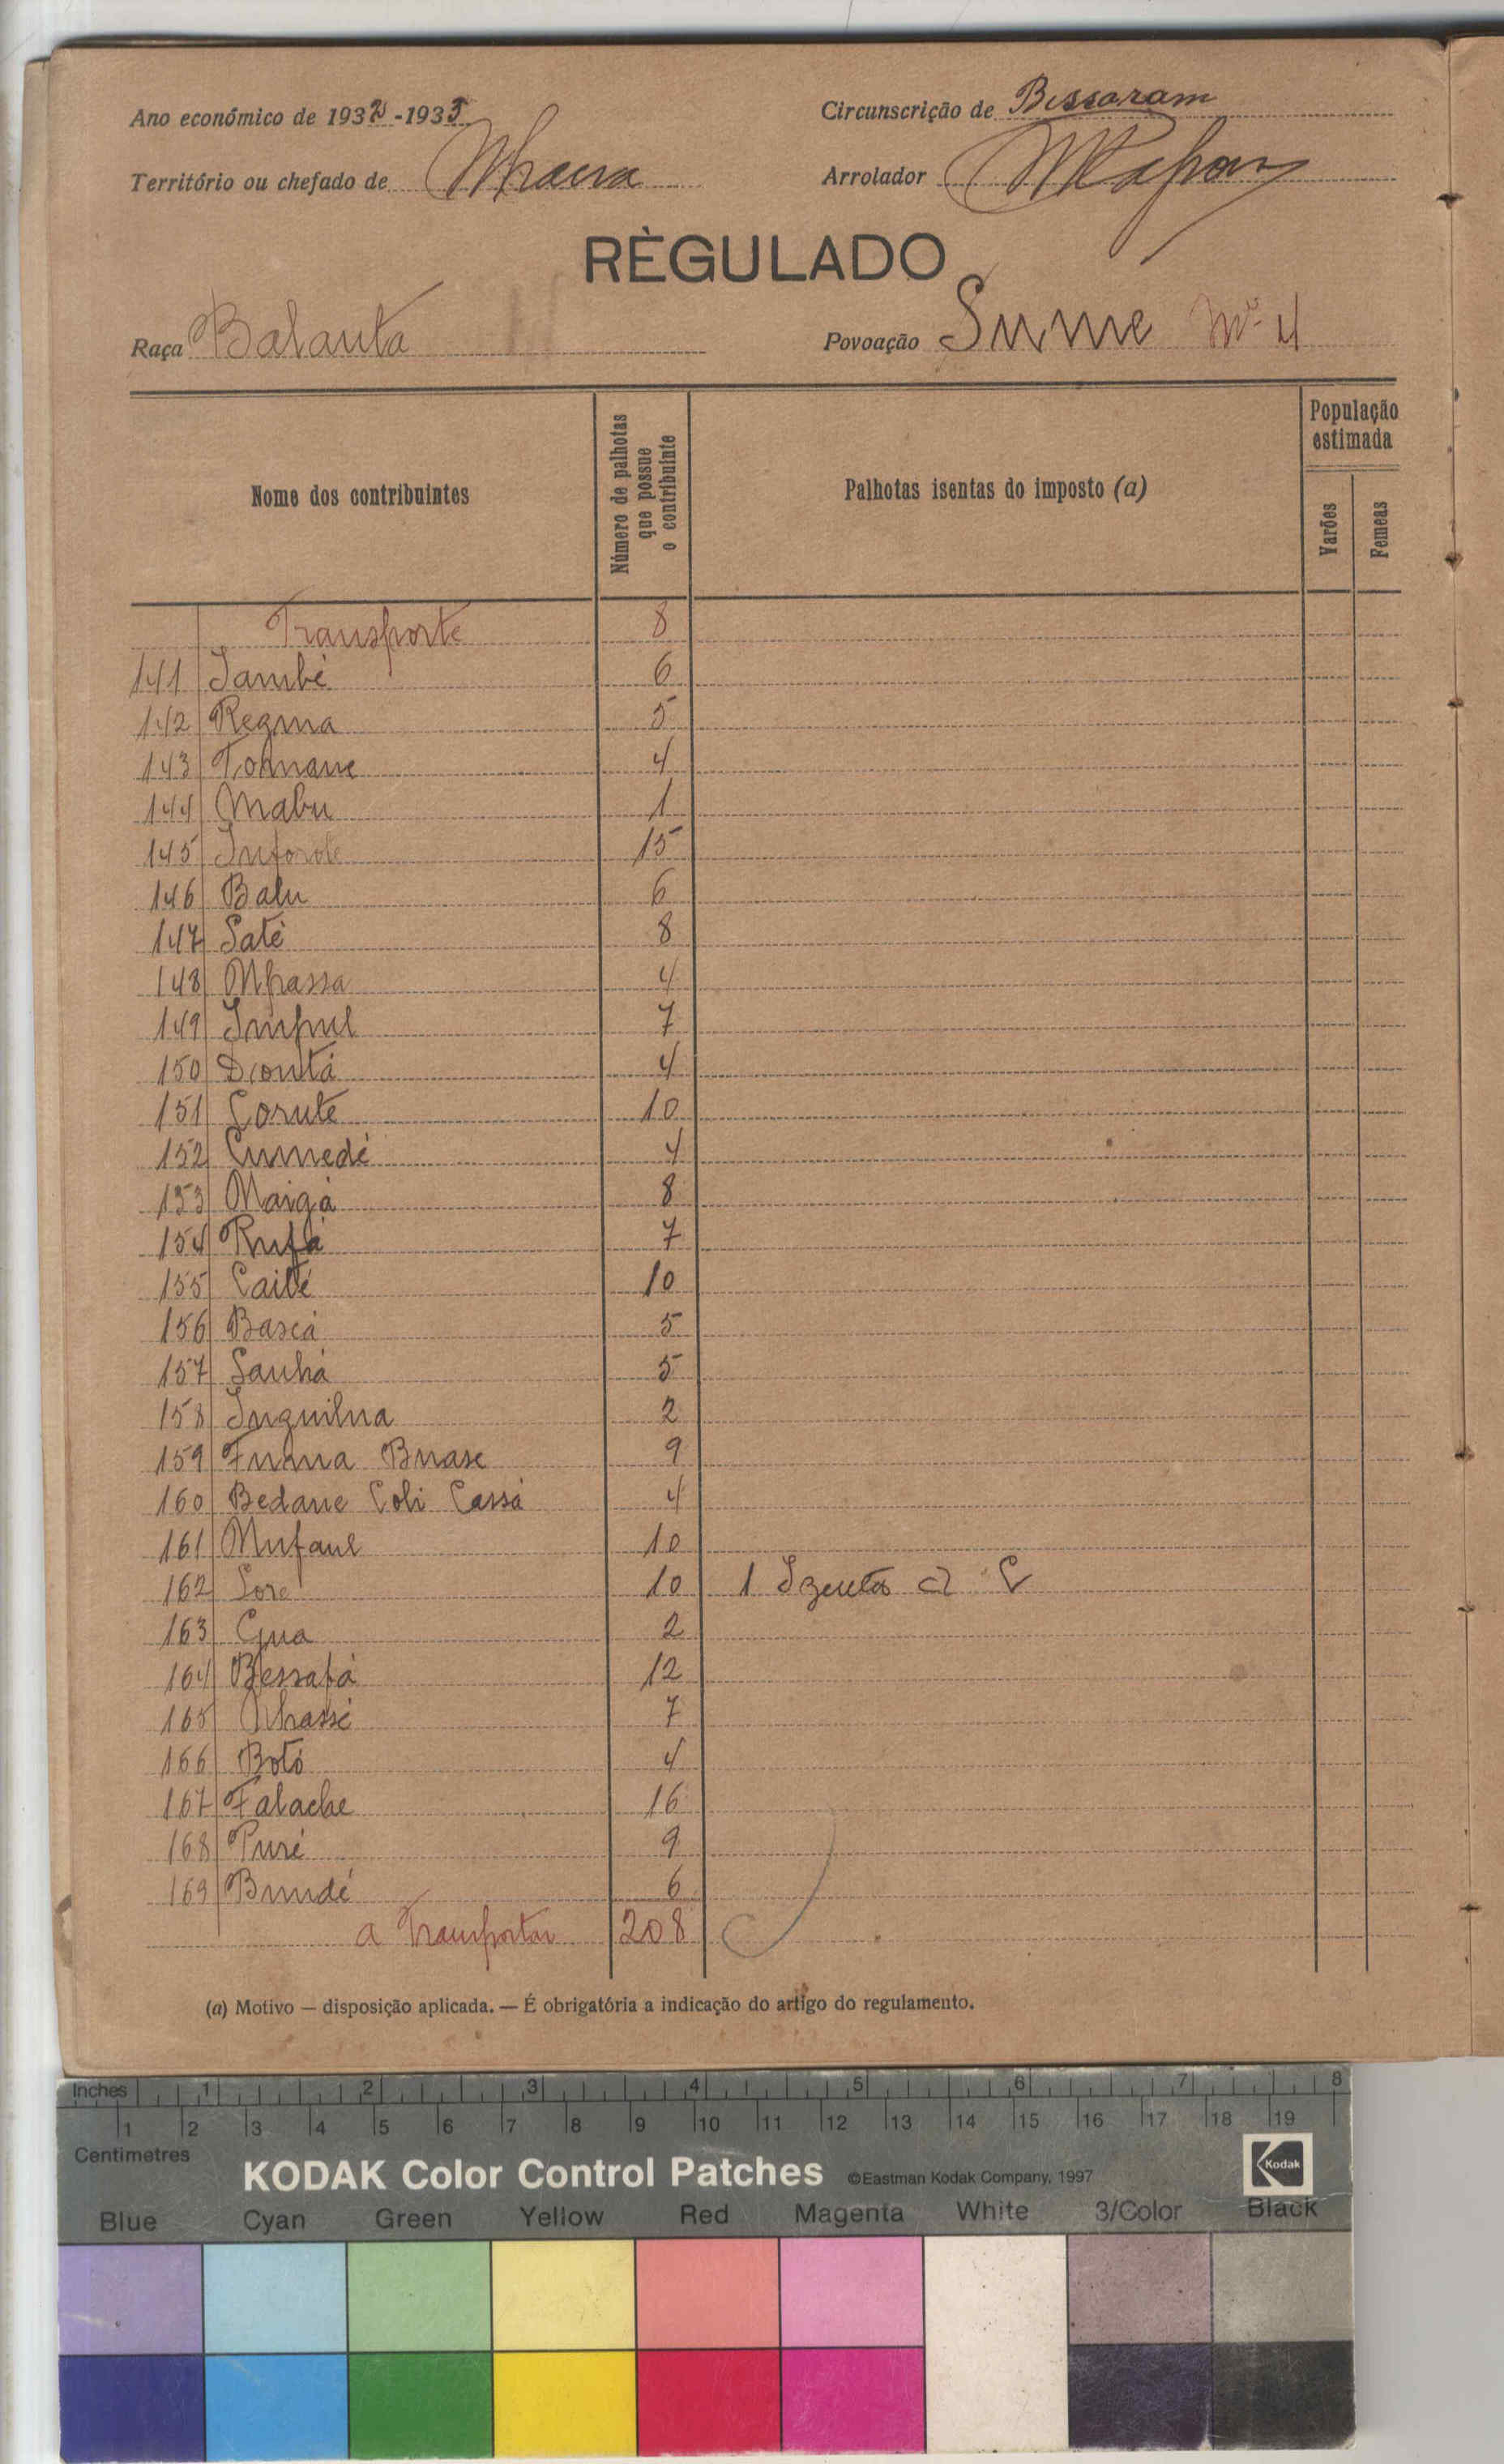 Ano económico de 1932-1933 Circunscrição de Bissoram
Território ou chefado de Nhaera Arrolador
RÈGULADO
Raça Balanta Povoação Sume Nº 4
Nome dos contribuintes Número de palhotas que possue o contribuinte Palhotas isentas do imposto (a) População estimada Varões Femeas
Transporte 8
141 Jambé 6
142 Regma 5
143 Tonhane 4
144 Mabu 1
145 15
146 Balu 6
147 Saté 8
148 Nhassa 4
149 Impul 7
150 Dontá 4
151 Corute 10
152 Cumedé 4
153 Naigá 8
154 Rufá 7
155 Caibé 10
156 Bascá 5
157 Sanhá 5
158 Inquilna 2
159 Funna Bnase 9
160 Bedane Coli Cassá 4
161 Nufane 10
162 Soré 10 1 Izenta a C
163 Gna 2
164 Bessafá 12
165 Nhassé 7
166 Botó 4
167 Falache 16
168 Puré 9
169 Bundé 6
a Transportar 208
(a) Motivo — disposição aplicada. — É obrigatória a indicação do artigo do regulamento.
Inches 1 2 3 4 5 6 7 8
1 2 3 4 5 6 7 8 9 10 11 12 13 14 15 16 17 18 19
Centimetres
KODAK Color Control Patches ©Eastman Kodak Company, 1997 Kodak
Blue Cyan Green Yellow Red Magenta White 3/Color Black